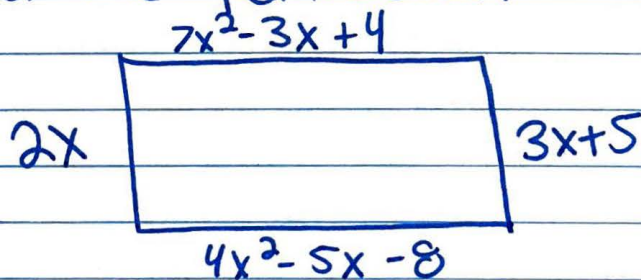 7x²-3x+4
2x
3x+5
4x²-5x-8